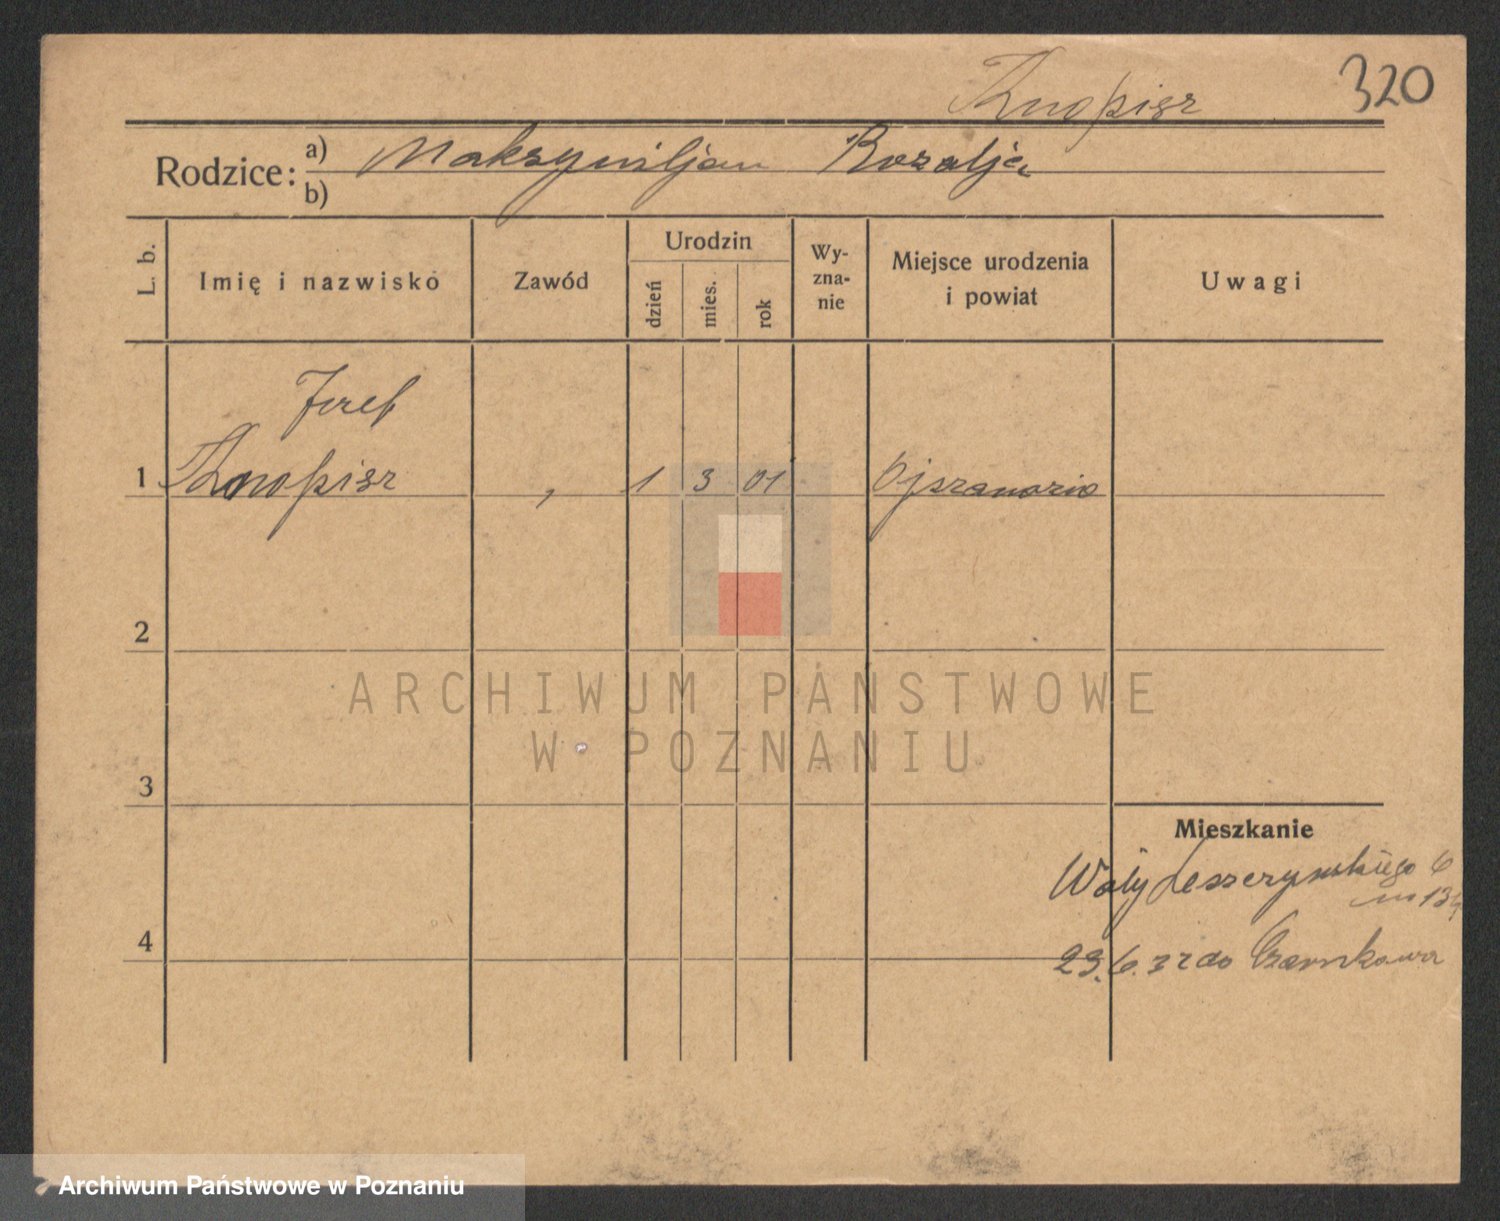 Knopisz
320
Rodzice: a) Maksymiljan Rozalja
b)
L. b.
Imię i nazwisko
Zawód
Urodzin
dzień
mies.
rok
Wy-
zna-
nie
Miejsce urodzenia
i powiat
Uwagi
Józef
1 Knopisz 1 3 01
2
3
4
Mieszkanie
Wały Leszczyńskiego 6
m 13
23.6.32 do Czarnkowa
ARCHIWUM PAŃSTWOWE
W POZNANIU
Archiwum Państwowe w Poznaniu